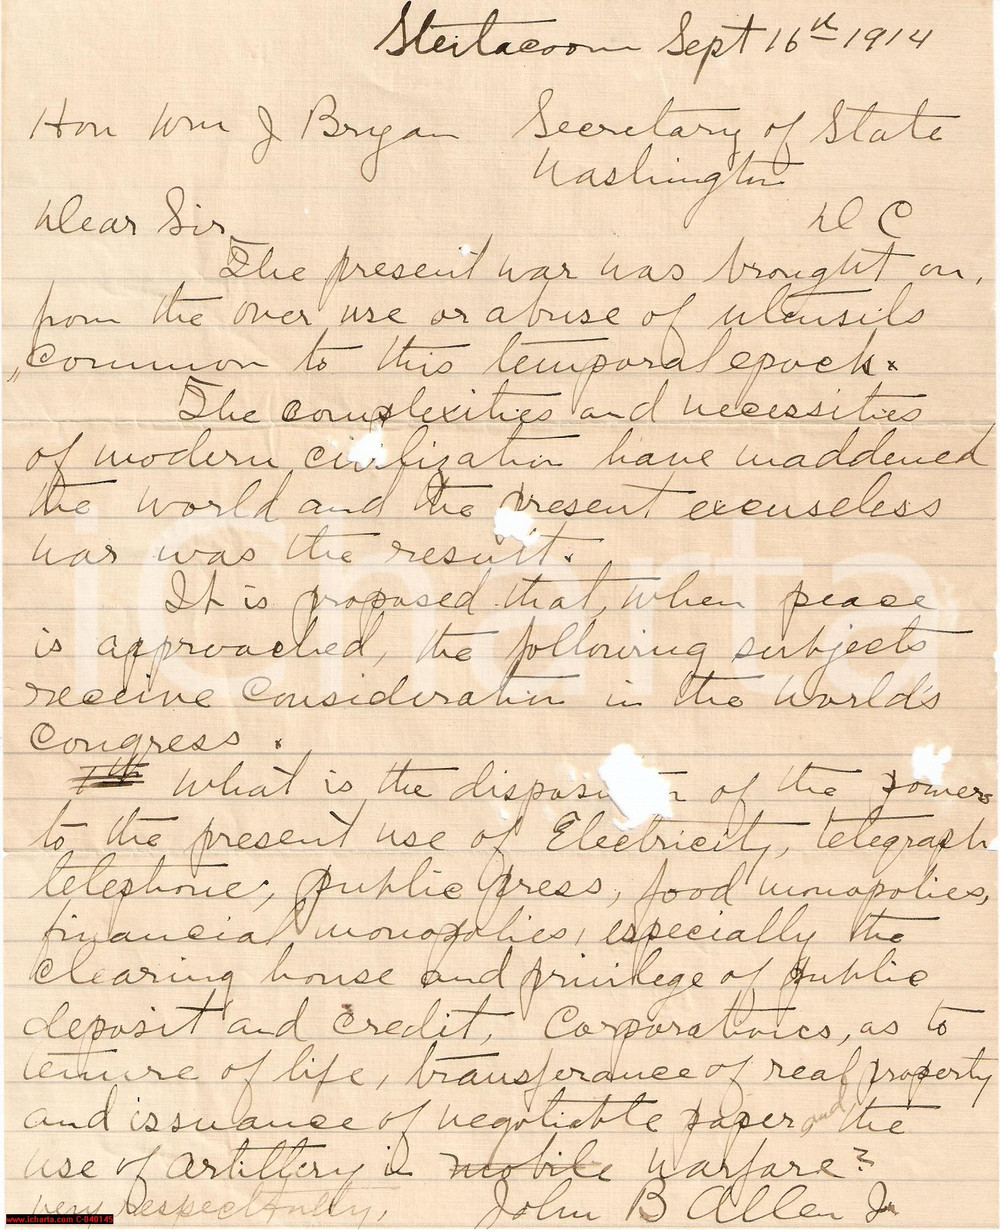 Steilacoom Sept 16th 1914
Hon Wm J Bryan Secretary of State
Washington
Dear Sir D C
The present war was brought on,
from the over use or abuse of utensils
common to this temporal epoch.
The complexities and necessities
of modern civilization have maddened
the world and the present excuseless
war was the result.
It is proposed that, when peace
is approached, the following subjects
receive consideration in the world's
congress.
What is the disposition of the powers
to the present use of Electricity, telegraph
telephone, public press, food monopolies,
financial monopolies, especially the
clearing house and privilege of public
deposit and credit, Corporations, as to
tenure of life, transferance of real property
and issuance of negotiable paper, and the
use of artillery in mobile warfare?
very respectfully, John B Allen Jr
iCharta
www.icharta.com C-040145